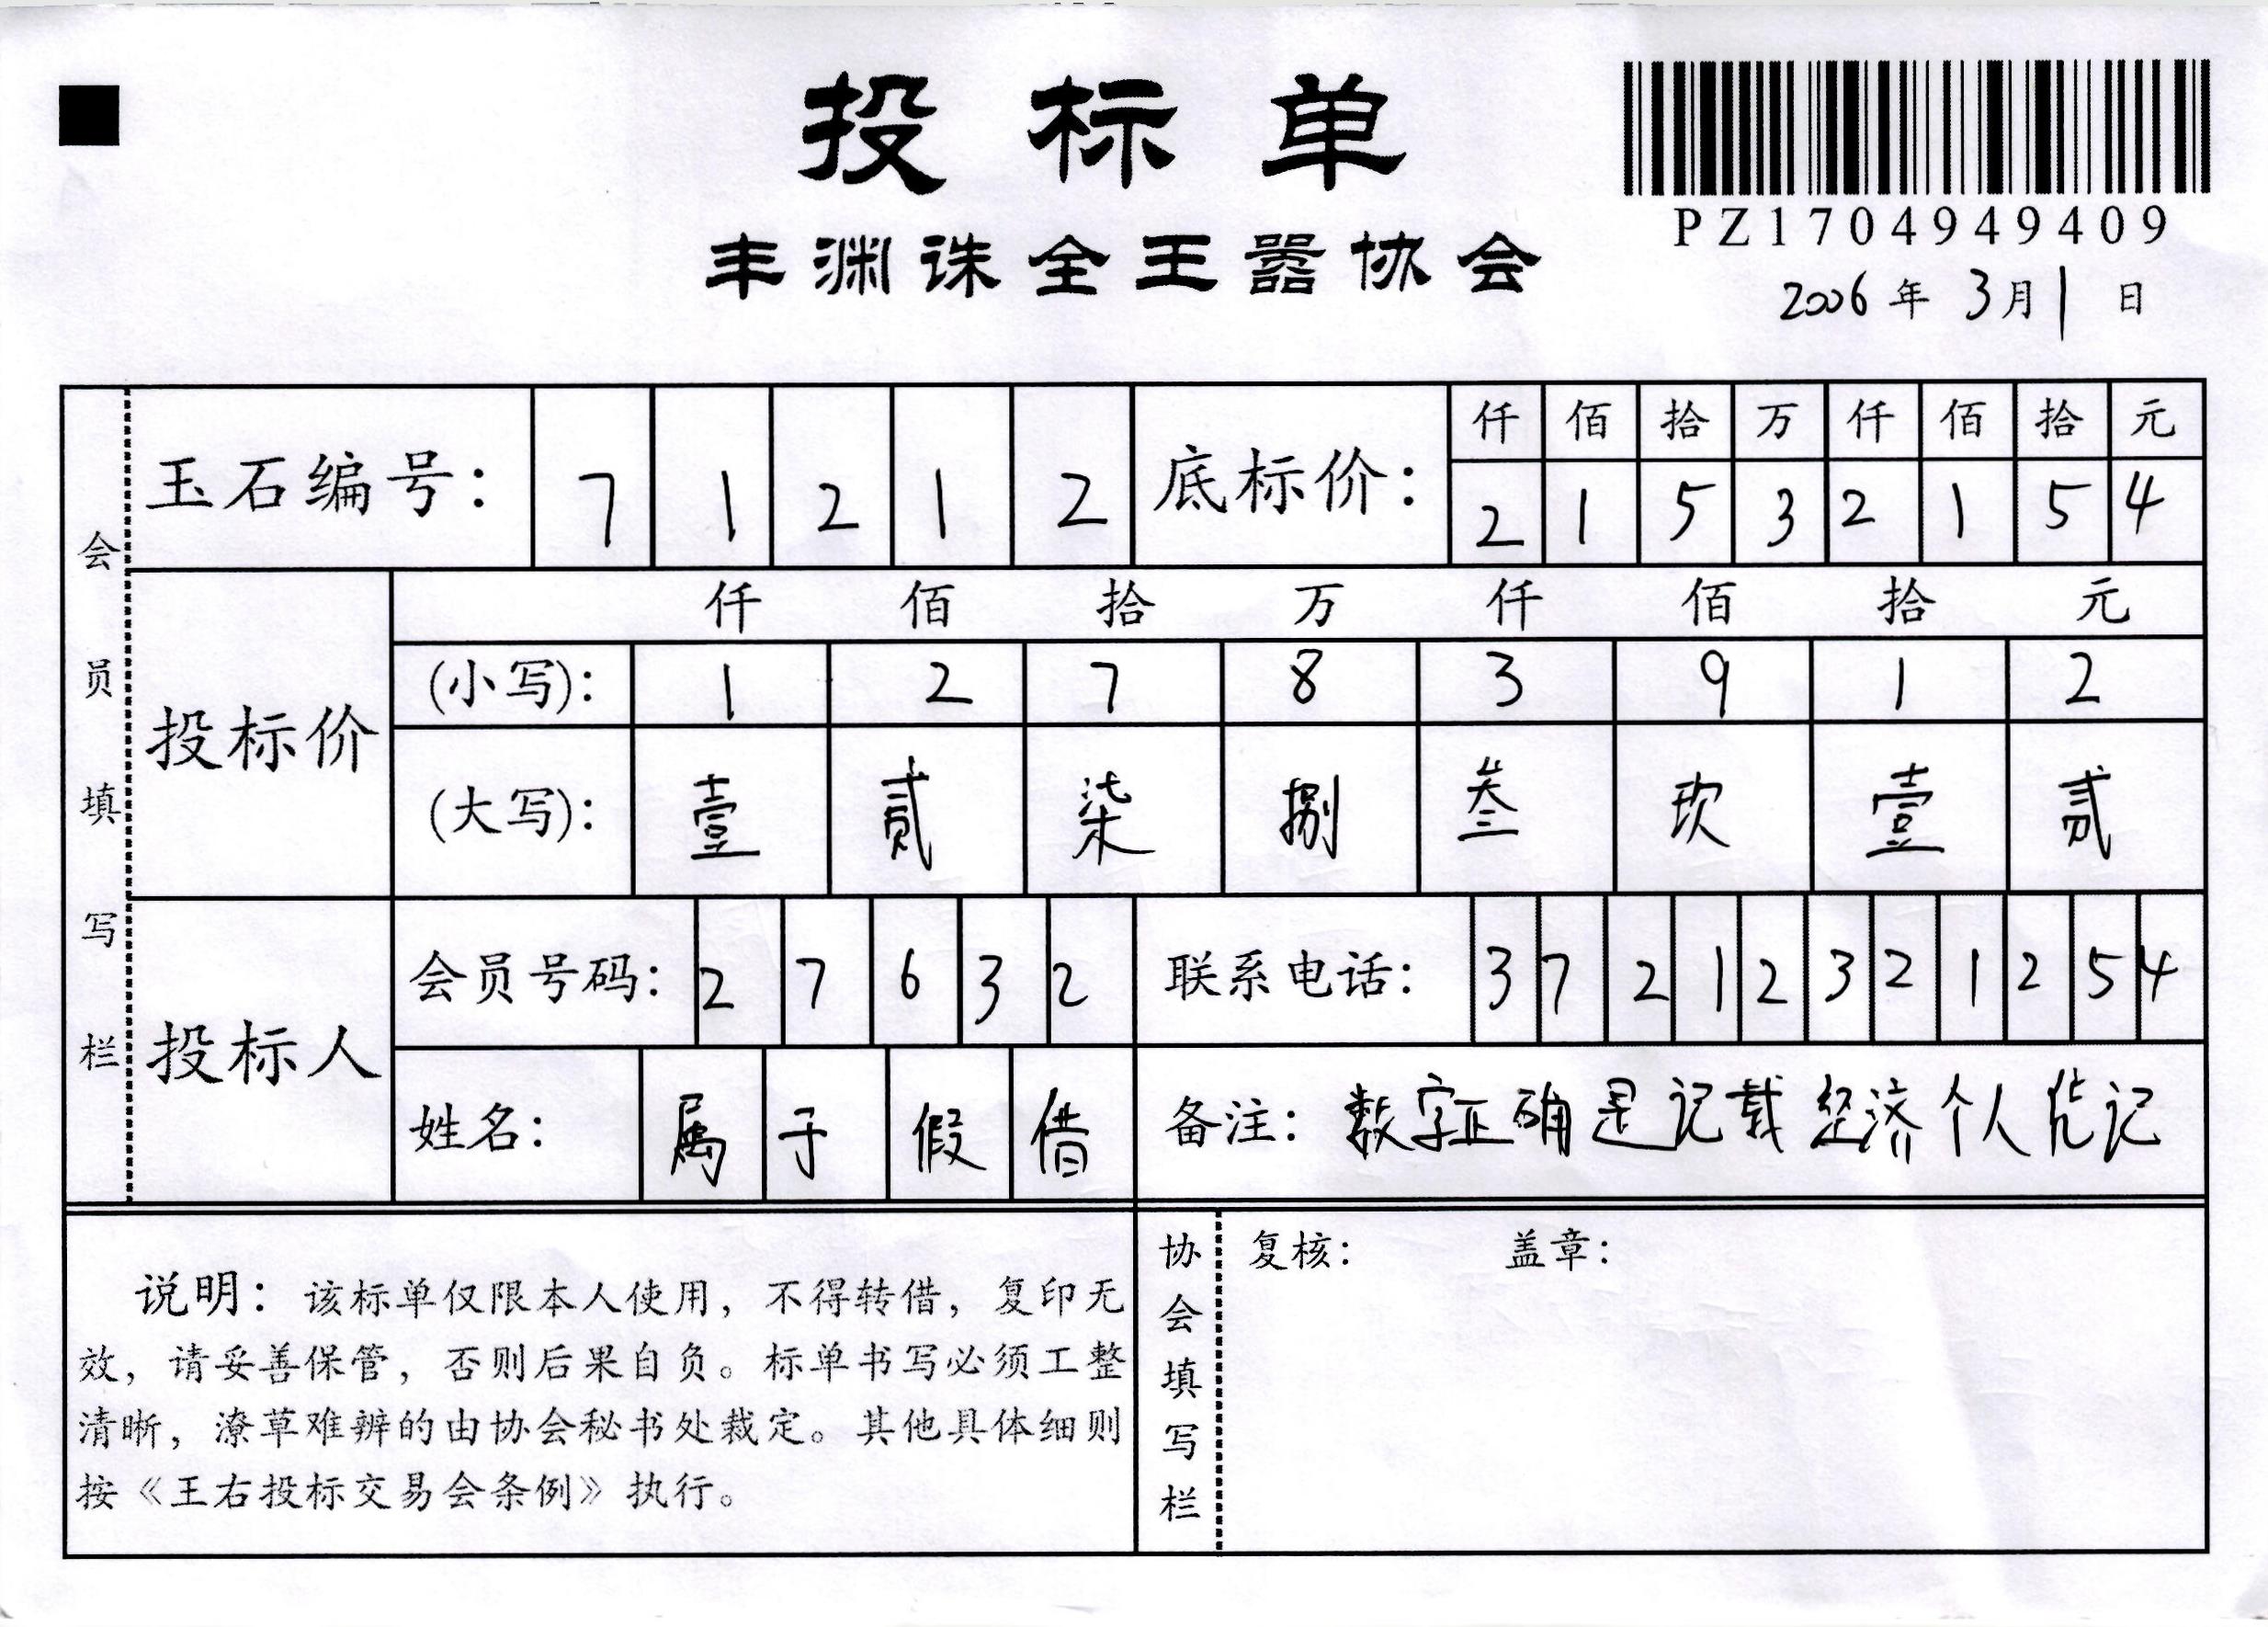 投标单
PZ1704949409
丰渊诛全王嚣协会
2006年3月1日
会员填写栏
玉石编号：71212
底标价：
仟佰拾万仟佰拾元
21532154
投标价
仟佰拾万仟佰拾元
(小写)：12783912
(大写)：壹贰柒捌叁玖壹贰
投标人
会员号码：27632
联系电话：37212321254
姓名：属于假借
备注：数字正确是记载经济个人凭记
说明：该标单仅限本人使用，不得转借，复印无
效，请妥善保管，否则后果自负。标单书写必须工整
清晰，潦草难辨的由协会秘书处裁定。其他具体细则
按《王右投标交易会条例》执行。
协会填写栏
复核： 盖章：